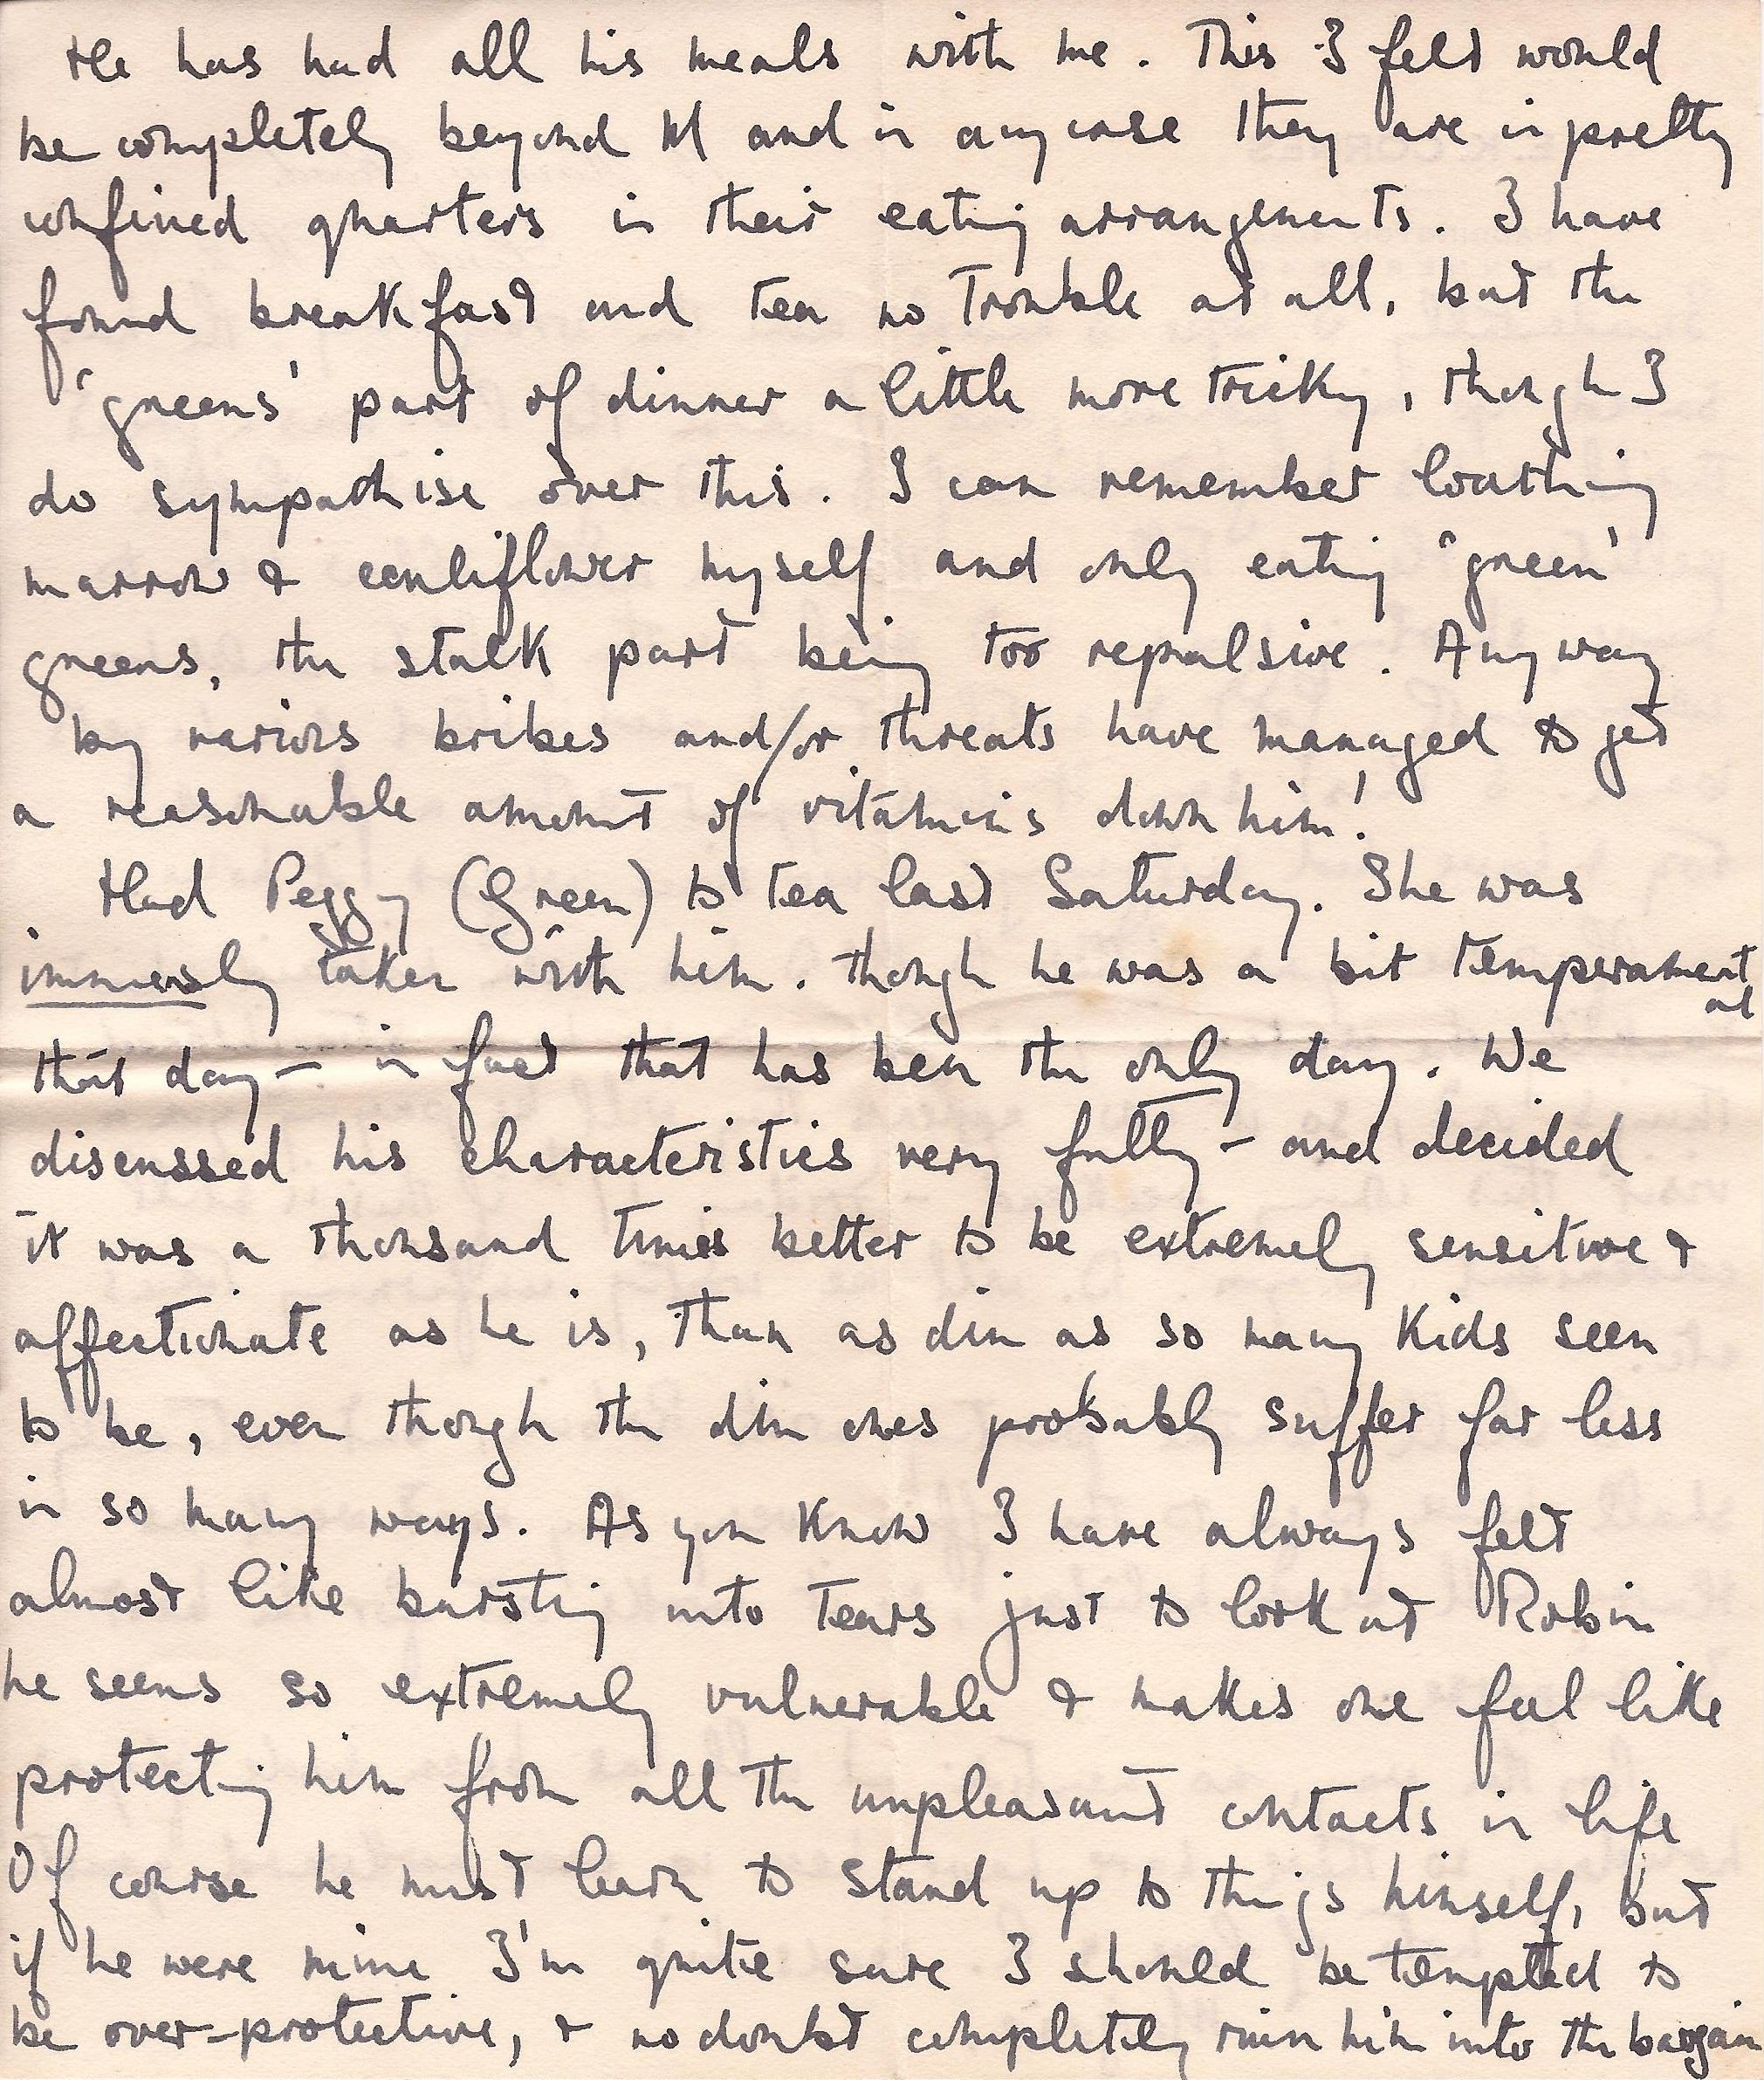 He has had all his meals with me. This I felt would
be completely beyond M and in any case they are in pretty
confined quarters in their eating arrangements. I have
found breakfast and tea no trouble at all, but the
'greens' part of dinner a little more tricky, though I
do sympathise over this. I can remember loathing
marrow & cauliflower myself and only eating 'green'
greens, the stalk part being too repulsive. Anyway
by various bribes and/or threats have managed to get
a reasonable amount of vitamins down him!
Had Peggy (Green) to tea last Saturday. She was
immensly taken with him. Though he was a bit temperament
al
that day — in fact that has been the only day. We
discussed his characteristics very fully — and decided
it was a thousand times better to be extremely sensitive &
affectionate as he is, than as dim as so many kids seem
to be, even though the dim ones probably suffer far less
in so many ways. As you know I have always felt
almost like bursting into tears just to look at Robin
he seems so extremely vulnerable & makes one feel like
protecting him from all the unpleasant contacts in life
Of course he must learn to stand up to things himself, but
if he were mine I'm quite sure I should be tempted to
be over-protective, & no doubt completely ruin him into the bargain